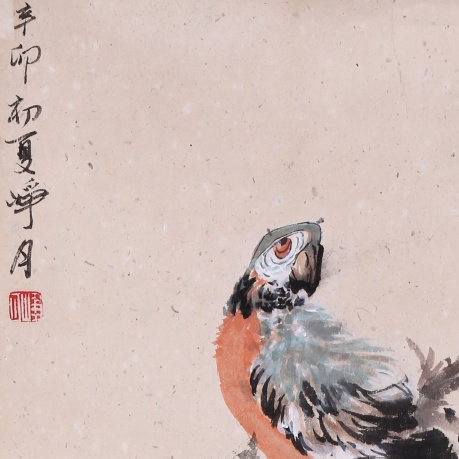 辛卯初夏峥月